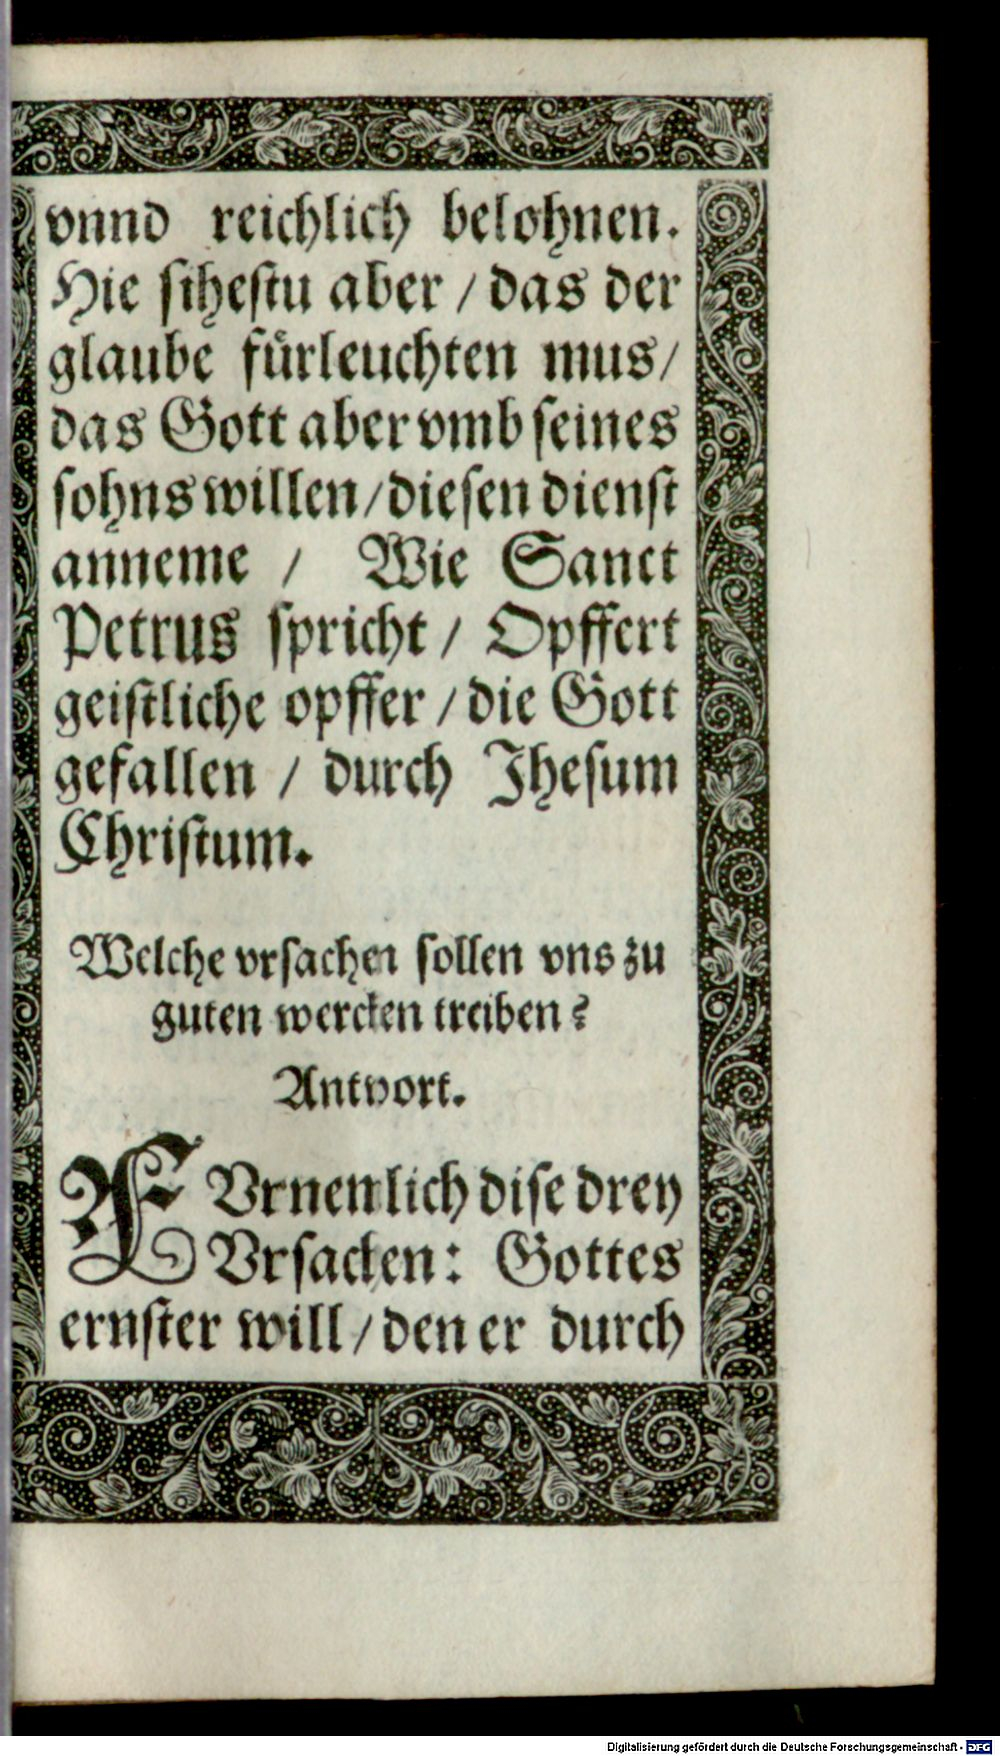 vnnd reichlich belohnen.
Hie sihestu aber / das der
glaube fürleuchten mus/
das Gott aber vmb seines
sohns willen/diesen dienst
anneme / Wie Sanct
Petrus spricht / Opffert
geistliche opffer / die Gott
gefallen / durch Jhesum
Christum.
Welche vrsachen sollen vns zu
guten wercken treiben?
Antwort.
FVrnemlich dise drey
Vrsachen: Gottes
ernster will/den er durch
Digitalisierung gefördert durch die Deutsche Forschungsgemeinschaft - DFG